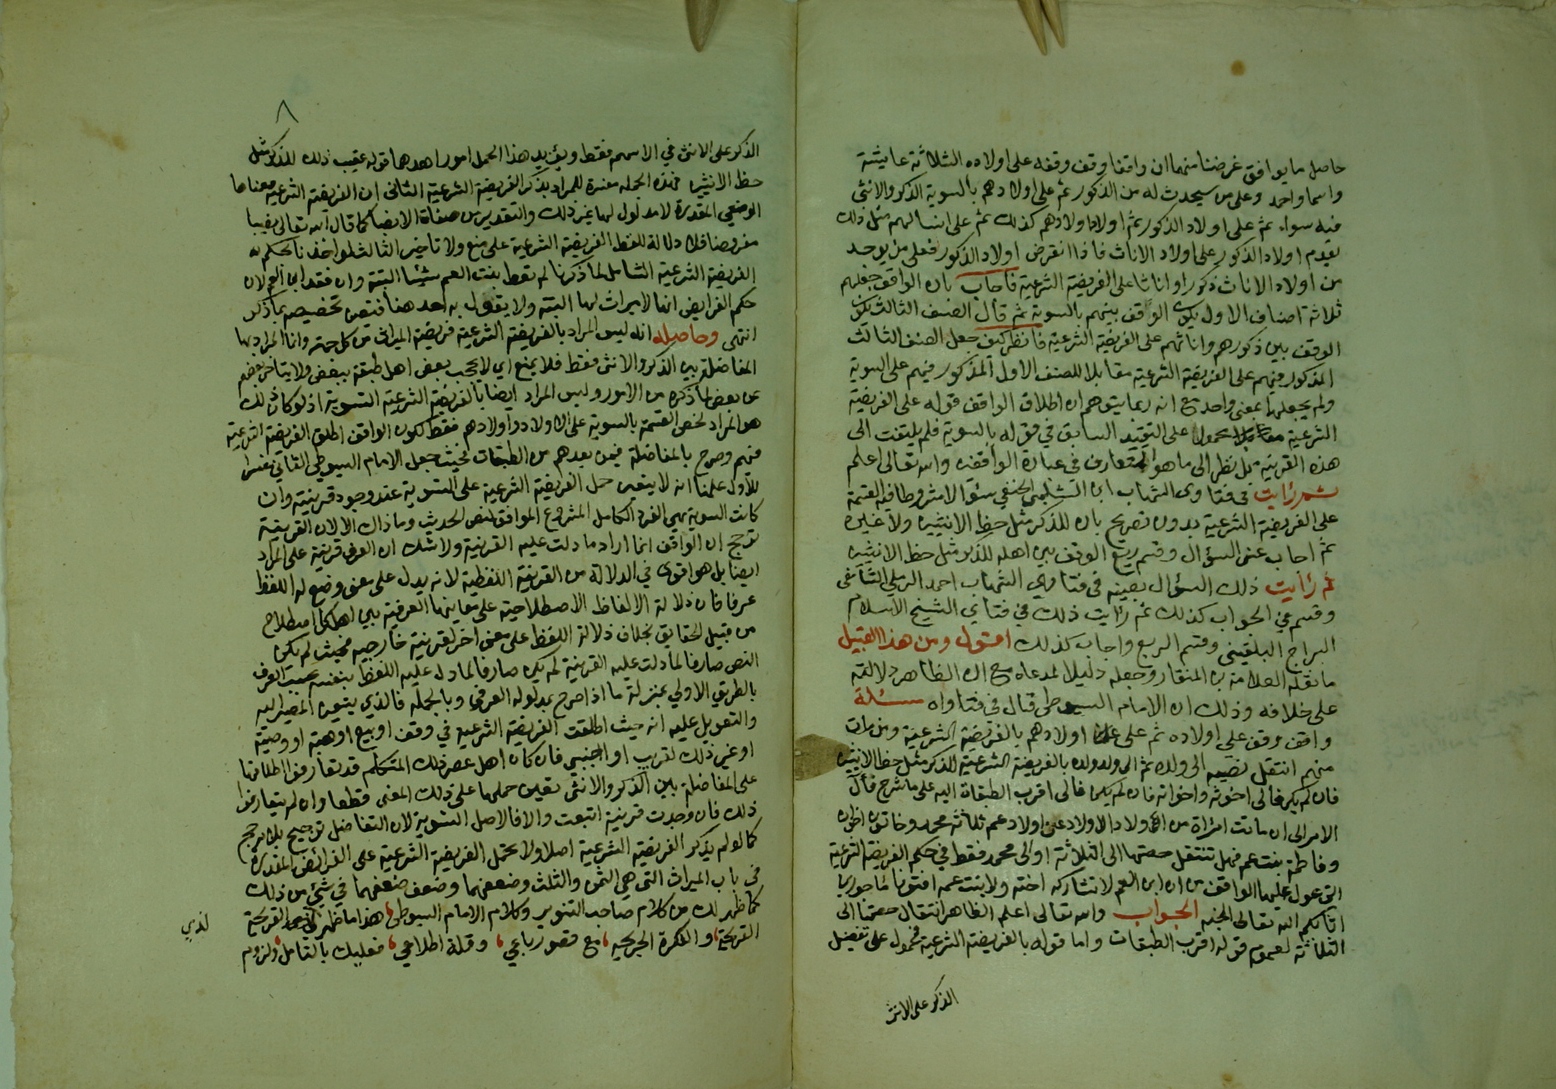 حاصل ما يوافق غرضنا منها ان واقفا وقف وقفه على اولاده الثلاثة عايشة
واسما واحمد وعلى من سيحدث له من الذكور ثم على اولادهم بالسوية الذكر والانثى
فيه سواء ثم على اولاد الذكور ثم اولاد اولادهم كذلك ثم على انسالهم مثل ذلك
يقدم اولاد الذكور على اولاد الاناث فاذا انقرض اولاد الذكور فعلى من يوجد
من اولاد الاناث ذكورا واناثا على الفريضة الشرعية فاجاب بان الواقف جعلهم
ثلاثة اصناف الاول يكون الوقف بينهم بالسوية ثم قال الصنف الثالث يكون
الوقف بين ذكورهم واناثهم على الفريضة الشرعية فانظر كيف جعل الصنف الثالث
المذكور فيهم على الفريضة الشرعية مقابلا للصنف الاول المذكور فيهم على السوية
ولم يجعلهما بمعنى واحد مع انه ربما يتوهم ان اطلاق الواقف قوله على الفريضة
الشرعية محمولا على التقييد السابق في قوله بالسوية فلم يلتفت الى
هذه القرينة بل نظر الى ما هو المتعارف في عبارة الواقفين والله تعالى اعلم
ثم رايت في فتاوى الشهاب ابن الشلبي الحنفي سئوالا مشروطا فيه القسمة
على الفريضة الشرعية بدون تصريح بان للذكر مثل حظ الانثيين ولا غيره
ثم اجاب عن السؤال وقسم ريع الوقف بين اهله للذكر مثل حظ الانثيين
ثم رايت ذلك السؤال بعينه في فتاوي الشهاب احمد الرملي الشافعى
وقسم في الجواب كذلك ثم رايت ذلك في فتاي الشيخ الاسلام
السراج البلقيني وقسم الريع واجاب كذلك اقول ومن هذا القبيل
ما نقله العلامة بن المنقار وجعله دليلا لمدعاه مع ان الظاهر دلالته
على خلافه وذلك ان الامام السيوطي قال في فتاواه مسئلة
واقف وقف على اولاده ثم على اولادهم بالفريضة الشرعية ومن مات
منهم انتقل نصيبه الى ولده ثم الى ولد ولده بالفريضة الشرعية للذكر مثل حظ الانثيين
فان لم يكن فالى اخوته واخواته فان لم يكن فالى اقرب الطبقات اليه على ما شرح فآل
الامر الى ان ماتت امراة من اولاد الاولاد عن اولاد عم ثلاثة محمد وخاتون اخوان
وفاطمة بنت عم فهل تنتقل حصتها الى الثلاثة او الى محمد فقط في حكم الفريضة الشرعية
التي عول عليها الواقف من ان ابن العم لا تشاركه اخته ولا بنت عمه افتونا ماجورين
اثابكم الله تعالى الجنه الجواب والله تعالى اعلم الظاهر انتقال حصتها الى
الثلاثة لعموم قوله اقرب الطبقات واما قوله بالفريضة الشرعية فمحمول على تفضيل
الذكر على الانثى
٨
الذكر على الانثى في الاسهم فقط ويؤيد هذا الحمل امور احدها قوله عقيب ذلك للذكر مثل
حظ الانثيين فهذه الجملة مفسرة للمراد بذكر الفريضة الشرعية الثاني ان الفريضة الشرعية معناها
الوضعي المقدرة لا مدلول لها غير ذلك والتقدير من صفات الانصبا كما قال الله تعالى نصيبا
مفروضا فلا دلالة للفظ الفريضة الشرعية على منع ولا تاخير الثالث لو اخذنا بحكم
الفريضة الشرعية الشامل لما ذكرنا لم يعط بنت العم شيئا البتة وان فقد ابن العم لان
حكم الفرايض انها لا ميراث لها البتة ولا يقول به احد هنا فتعين تخصيصه بما ذكر
انتهى وحاصله انه ليس المراد بالفريضة الشرعية فريضة الميراث من كل جهة وانما المراد بها
المفاضلة بين الذكر والانثى فقط فلا يمنع اي لا يحجب بعض اهل طبقة ببعض ولا يتاخر بعضهم
عن بعض لما ذكره من الامور وليس المراد ايضا بالفريضة الشرعية التسوية اذ لو كان ذلك
هو المراد لخص القسمة بالسوية على الاولاد واولادهم فقط لكون الواقف اطلق الفريضة الشرعية
فيهم وصرح بالمفاضلة فيمن بعدهم من الطبقات فحيث جعل الامام السيوطي الثاني مفسرا
للاول علمنا انه لا يتعين حمل الفريضة الشرعية على التسوية عند وجود قرينة وان
كانت السوية هي الفرد الكامل المشروع الموافق لنص الحديث وما ذاك الا لان القرينة
ترجح ان الواقف انما اراد ما دلت عليه القرينة ولا شك ان العرف قرينة على المراد
ايضا بل هو اقوى في الدلالة من القرينة اللفظية لانه يدل على معنى وضع له اللفظ
عرفا فان دلالة الالفاظ الاصطلاحية على معانيها العرفية بين اهل ذلك اصطلاح
من قبيل الحقايق بخلاف دلالة اللفظ على معنى اخر لقرينة خارجية فحيث لم يكن
النص صارفا لما دلت عليه القرينة لم يكن صارفا لما دل عليه اللفظ بنفسه بحسب العرف
بالطريق الاولى بمنزلة ما اذا صرح بمدلوله العرفي وبالجملة فالذي يتعين المصير اليه
والتعويل عليه انه حيث اطلقت الفريضة الشرعية في وقف او بيع او هبة او وصية
او غير ذلك لقريب او اجنبي فان كان اهل عصر ذلك المتكلم قد تعارفوا اطلاقها
على المفاضلة بين الذكر والانثى تعين حملها على ذلك المعنى قطعا وان لم يتعارفوا
ذلك فان وجدت قرينة اتبعت والا فالاصل التسوية لان التفاضل ترجيح بلا مرجح
كما لو لم يذكر الفريضة الشرعية اصلا ولا يحتمل الفريضة الشرعية على الفرائض المقدرة
في باب الميراث التي هي الثمن والثلث وضعفهما وضعف ضعفهما في شيء من ذلك
كما ظهر لك من كلام صاحب التنوير وكلام الامام السيوطي هذا ما ظهر لذي القريحة
القريحة والفكرة الجريحه مع قصور باعي وقلة اطلاعي فعليك بالتامل ولزوم
لذي